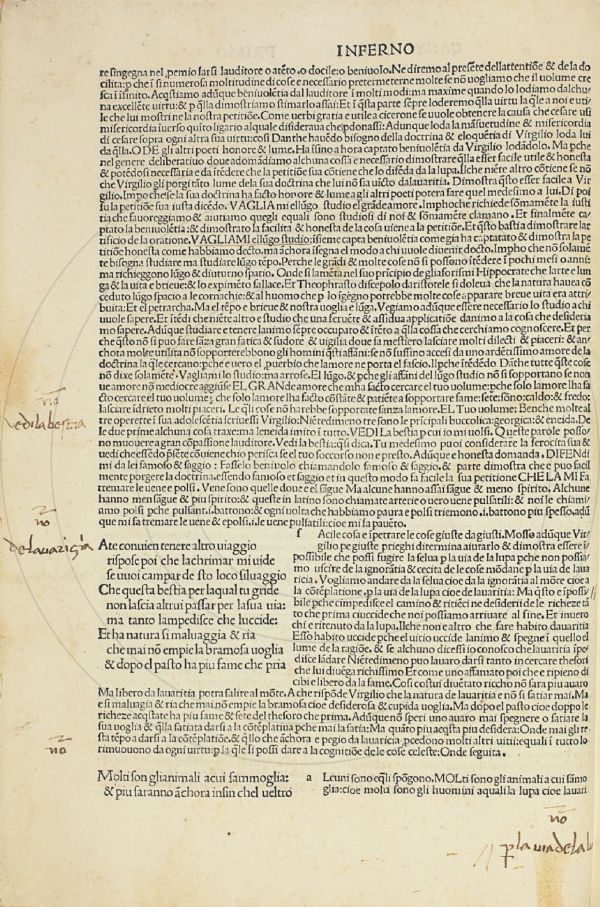 INFERNO
re singegna nel pemio farsi lauditore o atēto.o docile:o beniuolo.Ne diremo al presēte dellattentiōe & de la do
cilita:p che ī si numerosa moltitudine di cose e necessario pretermeterne molte se nō uogliamo che il uolume cre
sca ī isinito.Acqstiamo adūque beniuolētia dal lauditore ī molti modi:ma maxime quando lo lodiamo dalchu/
na excellēte uirtu:& p qlla dimostriamo stimarlo assai:Et ī qsta parte sēpre loderemo qlla uirtu la qle a noi e uti/
le che lui mostri ne la nostra petitiōe.Come uerbi gratia e utile a cicerone se uuole obtenere la causa che cesare usi
misericordia iuerso quīto ligario alquale disideraua che pdonassi:Adunque loda la māsuetudine & misericordia
di cesare sopra ogni altra sua uirtu:cosi Danthe hauēdo bisogno della doctrina & eloquētia di Virgilio loda lui
da qlla.O DE gli altri poeti honore & lume.Ha īsino a hora captato beniuolētia da Virgilio lodādolo.Ma pche
nel genere deliberatiuo doue adomādiamo alchuna cossa e necessario dimostrare qlla esser facile utile & honesta
& potēdosi necessaria e da itēdere che la petitiōe sua cōtiene che lo difēda da la lupa.Ilche niēte altro cōtiene se nō
che Virgilio gli porgi tāto lume de la sua doctrina che lui nō sia uīcto dalauaritia.Dimostra qsto esser facile a Vir
gilio.Impo che se la sua doctrina ha facto honore & lume a gli altri poeti potera fare quel medesimo a lui.Di poi
fu la petitiōe sua iusta dicēdo.VAGLIA mi ellūgo studio el grāde amore.Impho che richiede sōmamēte la iusti
tia che fauoreggiamo & aiutiamo quegli equali sono studiosi di noi & sōmamēte clamano.Et finalmēte ca/
ptato la beniuolētia:& dimostrato la facilita & honesta de la cosa uiene a la petitiōe.Et qsto basti a dimostrare lar
tificio de la oratione.VAGLIAMI ellūgo studio:isieme capta beniuolētia come gia ha captatato & dimostra la pe
titiōe honesta come habbiamo decto.ma āchora isegna el modo a chi uuole diuenir docto.Impho che nō solamē
te bisogna studiare ma studiare lūgo tēpo.Perche le grādi & molte cose nō si possono itēdere ī pochi mesi o anni:
ma richieggono lūgo & diuturno spatio.Onde si lamēta nel suo pricipio de gli aforismi Hippocrate che larte e lun
ga & la uita e brieue:& lo expimēto fallace.Et Theophrasto discepolo daristotele si doleua che la natura hauea cō
ceduto lūgo spatio a le cornachie:& al huomo che p lo īgegno potrebbe molte cose apparare breue uita era attri/
buita:Et el petrarcha.Ma el tēpo e brieue & nostra uoglia e lūga.Vegiamo adūque essere necessario lo studio a chi
uuole sapere.Et itēdi che niēte altro e studio che una feruēte & assidua applicatiōe danimo a la cosa che desideria
mo sapere.Adūque studiare e tenere lanimo sēpre occupato & itēto a qlla cossa che cerchiamo cognoscere.Et per
che qsto nō si puo fare sāza gran fatica & sudore & uigilia doue fa mestiero lasciare molti dilecti & piaceri:& an/
chora molte utilita nō sopporterebbono gli homini qsti affanni:se nō fussino accesi da uno ardētissimo amore de la
doctrina la qle cercano:pche e uero el puerbio che lamore ne porta el fascio.Ilpche itēdēdo Dāthe tutte qste cose
nō dixe solamēte.Vagliami lo studio:ma arrose.El lūgo.&pche gli affanni del lūgo studio nō si sopportano se non
ue amore nō mediocre aggiūse EL GRANde amore che mha facto cercare el tuo uolume:pche solo lamore lha fa
cto cercare el tuo uolume;che solo lamore lha facto cōstāte & patiēte a sopportare fame:sete:sono:caldo:& fredo:
lasciare idrieto molti piaceri.Le qli cose nō harebbe sopportate sanza lamore.EL Tuo uolume:Benche molte al
tre operette ī sua adolescētia scriuessi Virgilio:Niētedimeno tre sono le pricipali buccolica:georgica:& eneida.De
le due prime alchuna cosa traxema leneida imito ī tutto.VEDI LA bestia per cui io mi uolsi.Queste parole posso/
no muouere a gran cōpassione lauditore.Vedi la bestia:qsi dica.Tu medesimo puoi considerare la ferocita sua &
uedi che essēdo psēte cōuiene chio perisca se el tuo soccorso non e presto.Adūque e honesta domanda.DIFENdi
mi da lei famoso & saggio:Fasselo beniuolo chiamandolo famoso & saggio.& parte dimostra che e puo facil
mente porgere la doctrina.essendo famoso et saggio et in questo modo fa facile la sua petitione CHE LA MI Fa
tremare le uene e polsi.Vene sono quelle doue e el sāgue Ma alcune hanno assai sāgue & meno spirito.Alchune
hanno men sāgue & piu spirito:& queste in latino sono chiamate arterie o uero uene pulsatili:& noi le chiami/
amo polsi pche pulsant.i.battono:& ogni uolta che habbiamo paura e polsi triemono.i.battono piu spesso.adū
que mi fa tremare le uene & epolsi.i.le uene pulsatili:cioe mi fa pauēto.
nō
uedi la bestia
nō
de lauaritia
Ate conuien tenere altro uiaggio
rispose poi che lachrimar mi uide
se uuoi campar de sto loco siluaggio
Che questa bestia per laqual tu gride
non lascia altrui passar per la sua uia:
ma tanto lampedisce che luccide:
Et ha natura si maluaggia & ria
che mai nō empie la bramosa uoglia
& dopo el pasto ha piu fame che pria
f Acile cosa e spetrare le cose giuste da giusti.Mosso adūque Vir
gilio pe giuste prieghi determina aiutarlo & dimostra essere ī
possibile che possi fugire la selua p la uia de la lupa pche non possia/
mo uscire de la ignorātia & cecita de le cose mōdane p la uia de laua
ricia.Vogliamo andare da la selua cioe da la ignorātia al mōte cioe a
la cōtēplatione.p la uia de la lupa cioe de lauaritia:Ma qsto e ipossi/
bile pche cimpedisce el camino & ritiēci ne desiderii de le richeze tā
to che prima ciuccide che noi possiamo arriuare al fine.Et inuero
chi e ritenuto da la lupa.Ilche non e altro che fare habito dauaritia
Esso habito uccide pche el uitio uccide lanimo & spegne ī quello el
lume de la ragiōe.& se alchuno dicessi io conosco che lauaritia īpe/
disce ladāre Niētedimeno puo lauaro darsi tanto in cercare thesori
che lui diuēga richissimo:Et come uno affamato poi che e ripieno di
cibi e libero da la fame.Cosi costui diuētato riccho nō sara piu auaro
Ma libero da lauaritia potra salire al mōte.A che rispōde Virgilio che la natura de lauaritia e nō si satiar mai.Ma
e si maluagia & ria che mai nō empie la bramosa cioe desiderosa & cupida uoglia.Ma dopo el pasto cioe doppo le
richeze acqstate ha piu fame & sete del thesoro che prima.Adūque nō speri uno auaro mai spegnere o satiare la
sua uoglia & qlla satiata darsi a la cōtēplatiua pche mai la satia:Ma quāto piu acqsta piu desidera:Onde mai gli re
sta tēpo a darsi a la cōtēplatiōe.& qllo che āchora e pegio da lauaricia pcedono molti altri uitii:equali ī tutto lo
rimuouono da ogni uirtu:p la qle si possi dare a la cognitiōe de le cose celeste:Onde seguita.
nō
Molti son glianimali a cui sammoglia:
& piu saranno āchora insin chel ueltro
a Lcuni sono eqli spōgono.MOLti sono gli animali a cui samo
glia:cioe molti sono gli huomini aquali la lupa cioe lauari
nō
p la uia de la l